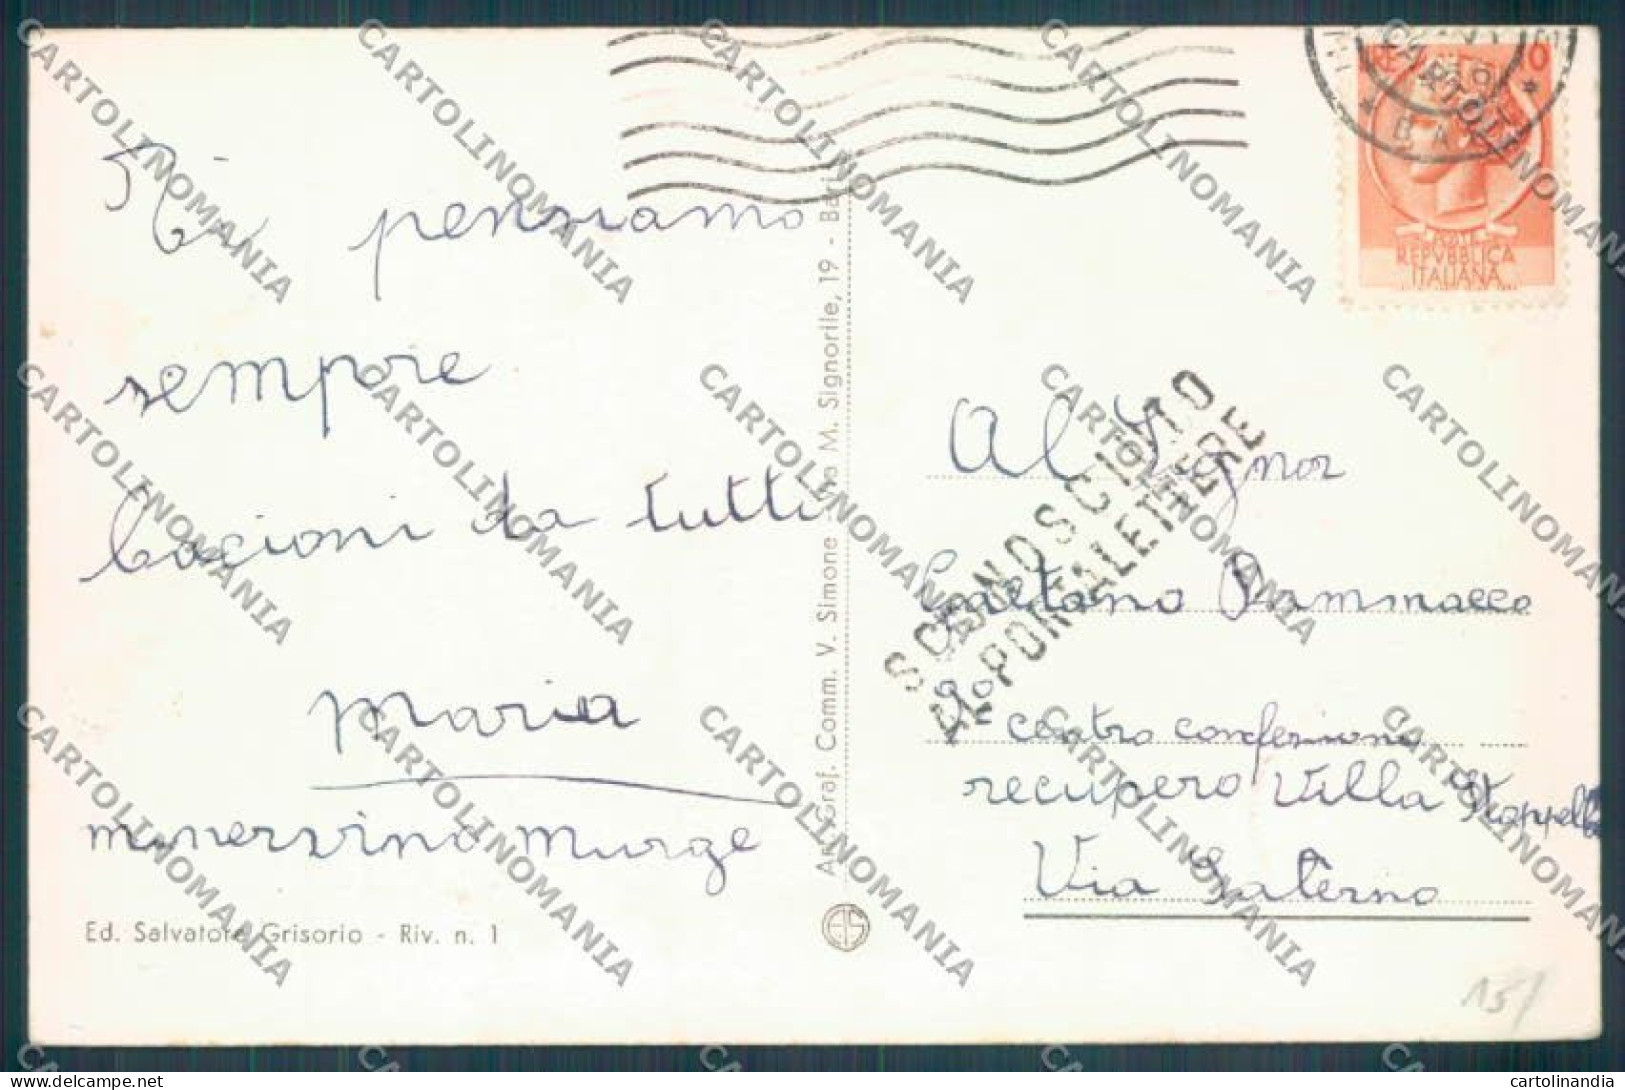 Ti pensiamo
sempre
bacioni da tutti
Maria
minervino murge
Ed. Salvatore Grisorio - Riv. n. 1
Graf. Comm. V. Simone Via M. Signorile, 19 - Bari
REPVBBLICA
ITALIANA
SCONOSCIUTO
AL PORTALETTERE
Al Signor
Gaetano Dammacco
centro
recupero Villa
Via Salerno
15/
CARTOLINOMANIA
cartolinandia